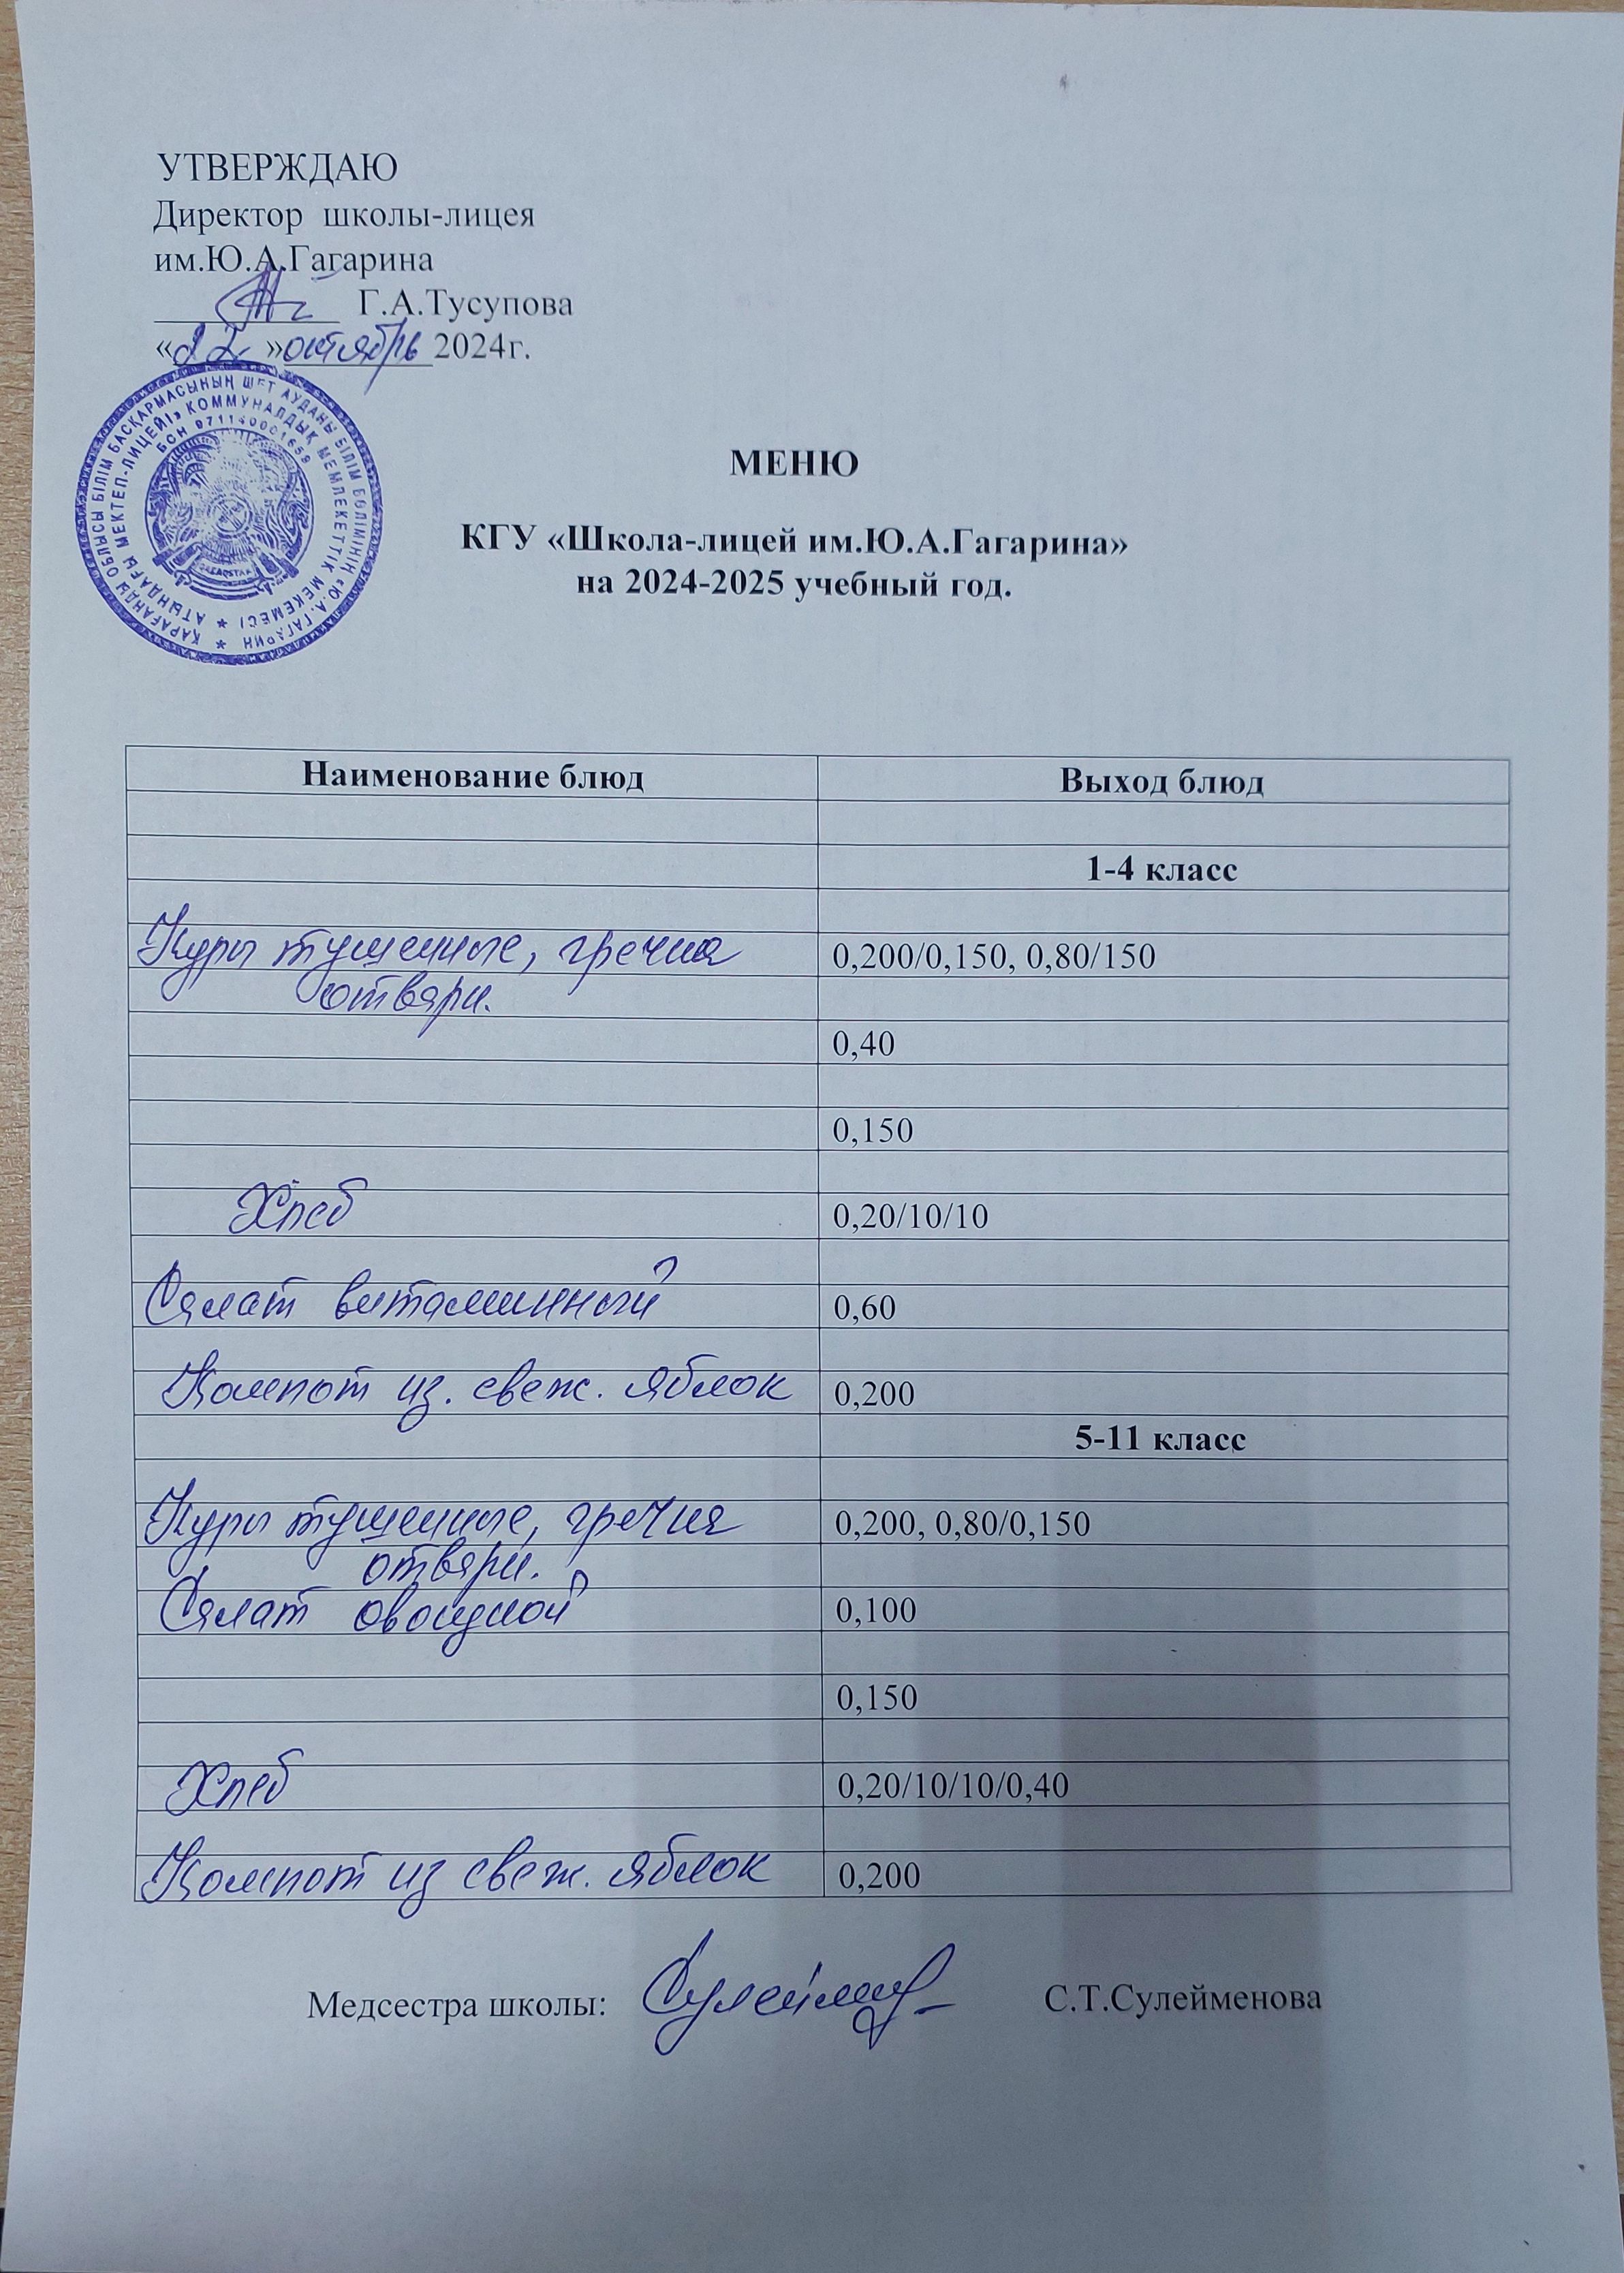 УТВЕРЖДАЮ
Директор школы-лицея
им.Ю.А.Гагарина
Г.А.Тусупова
«22»октябрь 2024г.
ҚАРАҒАНДЫ ОБЛЫСЫ БІЛІМ БАСҚАРМАСЫНЫҢ ШЕТ АУДАНЫ БІЛІМ БӨЛІМІНІҢ «Ю.А.ГАГАРИН
АТЫНДАҒЫ МЕКТЕП-ЛИЦЕЙІ» КОММУНАЛДЫҚ МЕМЛЕКЕТТІК МЕКЕМЕСІ
БСН 971140001659
МЕНЮ
КГУ «Школа-лицей им.Ю.А.Гагарина»
на 2024-2025 учебный год.
Наименование блюд Выход блюд
1-4 класс
Куры тушенные, гречка 0,200/0,150, 0,80/150
отварн.
0,40
0,150
Хлеб 0,20/10/10
Салат витаминный 0,60
Компот из. свеж. яблок 0,200
5-11 класс
Куры тушенные, гречка 0,200, 0,80/0,150
отварн.
Салат овощной 0,100
0,150
Хлеб 0,20/10/10/0,40
Компот из свеж. яблок 0,200
Медсестра школы: С.Т.Сулейменова